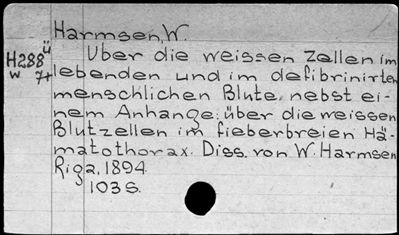 Harmsen, W.
H288 Über die weissen Zellen im
w 7+ lebenden und im defibrinirten
menschlichen Blute, nebst ei-
nem Anhange: über die weissen
Blutzellen im fieberbreien Hä-
matothorax. Diss. von W. Harmsen
Riga, 1894.
103 S.